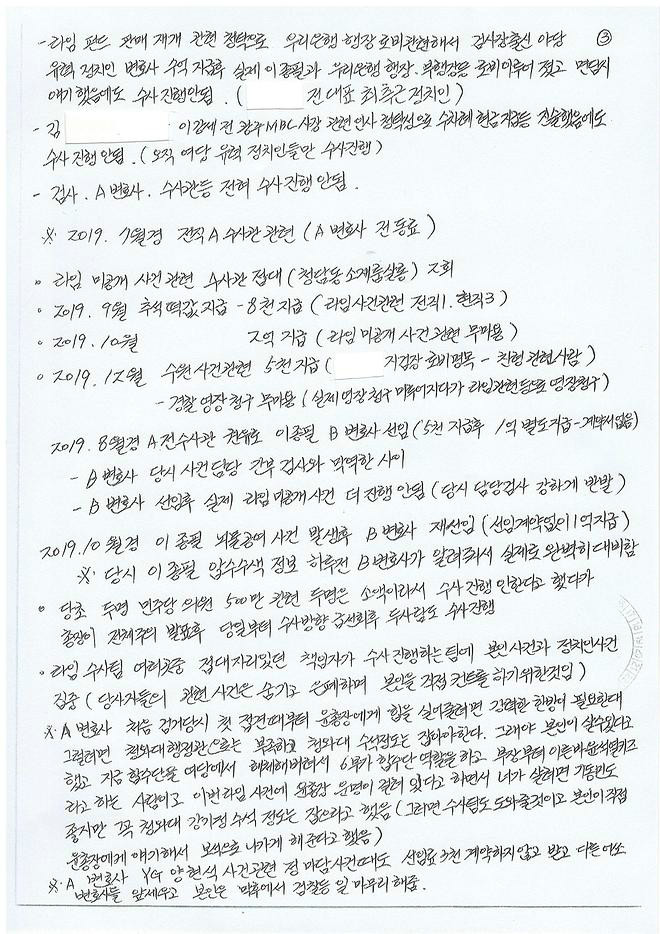 - 라임 펀드 판매 재개 관련 청탁으로 우리은행 행장 로비관련해서 검사장출신 야당 ③
유력 정치인 변호사 수억 지급후 실제 이종필과 우리은행 행장. 부행장등 로비이루어 졌고 면담시
얘기 했음에도 수사 진행안됨. ( 전 대표 최측근 정치인 )
- 김 이강세 전 광주MBC사장 관련 인사 청탁성으로 수차례 현금지급등 진술했음에도
수사 진행 안됨. ( 오직 여당 유력 정치인들만 수사진행 )
- 검사. A 변호사. 수사관등 전혀 수사진행 안됨.
※ 2019. 7월경 전직 A 수사관 관련 ( A 변호사 전 동료 )
◦ 라임 미공개 사건 관련 수사관 접대 ( 청담동 소재룸살롱 ) 2회
◦ 2019. 9월 추석떡값지급 - 8천 지급 ( 라임사건관련 전직1. 현직3 )
◦ 2019. 10월 2억 지급 ( 라임 미공개 사건 관련 무마용 )
◦ 2019. 12월 수원사건관련 5천 지급 ( 지검장 로비명목 - 친형 관련사람 )
- 경찰 영장 청구 무마용 ( 실제 영장 청구 미루어지다가 라임관련등으로 영장청구 )
2019. 8월경 A 전수사관 이종필 B 변호사 선임 ( 5천 지급후 1억 별도지급 - 계약서없음 )
- B 변호사 당시 사건 담당 간부 검사와 막역한 사이
- B 변호사 선임후 실제 라임 미공개사건 더 진행 안됨 ( 당시 담당검사 강하게 반발 )
2019. 10월경 이종필 뇌물공여 사건 발생후 B 변호사 재선임 ( 선임계약없이 1억지급 )
※ 당시 이종필 압수수색 정보 하루전 B 변호사가 알려줘서 실제로 완벽히 대비함
◦ 당초 두명 민주당 의원 500만 관련 두명은 소액이라서 수사진행 안한다고 했다가
총장이 전체주의 발표후 당일부터 수사방향 급선회후 두사람도 수사진행
◦ 라임 수사팀 여러곳중 접대자리있던 책임자가 수사진행하는 팀에 본인사건과 정치인사건
집중 ( 당사자들의 관련 사건은 숨기고 은폐하며 본인을 직접 컨트롤 하기위한것임 )
※ A 변호사 처음 검거당시 첫 접견때부터 윤총장에게 힘을 실어줄려면 강력한 한방이 필요한데
그럴려면 청와대행정관으로는 부족하고 청와대 수석정도는 잡아야한다. 그래야 본인이 살수있다고
했고 지금 합수단을 여당에서 해체해버려서 6부가 합수단 역할을 하고 부장부터 이른바윤석열키즈
라고 하는 사람이고 이번라임 사건에 윤총장 운명이 걸려 있다고 하면서 너가 살려면 기동민도
좋지만 꼭 청와대 강기정 수석 정도는 잡으라고 했음 ( 그러면 수사팀도 도와줄것이고 본인이직접
윤총장에게 얘기해서 보석으로 나가게 해준다고 했음 )
※ A 변호사 YG 양현석 사건관련 정 마담사건때도 선임료 3천 계약하지 않고 받고 다른 어쏘
변호사를 앞세우고 본인은 막후에서 검찰등 일 마무리 해줌.